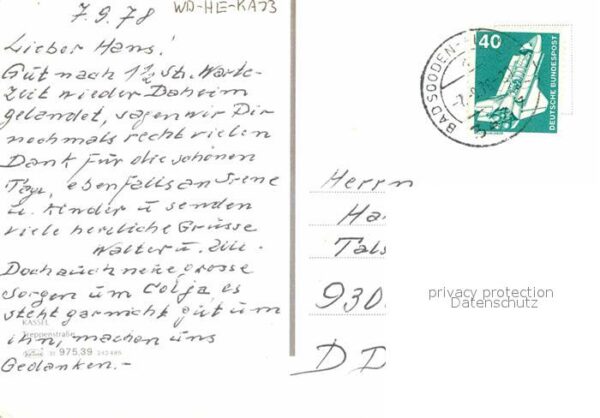 7.9.78
WD-HE-KA73
Lieber Hans!
Gut nach 1½ St. Warte-
zeit wieder Daheim
gelandet, sagen wir Dir
nochmals recht vielen
Dank für die schönen
Tage, ebenfalls an Irene
u. Kinder u senden
viele herzliche Grüsse
Walter u.
Doch auch neue grosse
Sorgen um es
steht garnicht gut um
ihn, machen uns
Gedanken.-
KASSEL
Treppenstraße
975.39
BAD SOODEN-
40
DEUTSCHE BUNDESPOST
Herrn
Ha
Tals
930
DD
privacy protection
Datenschutz